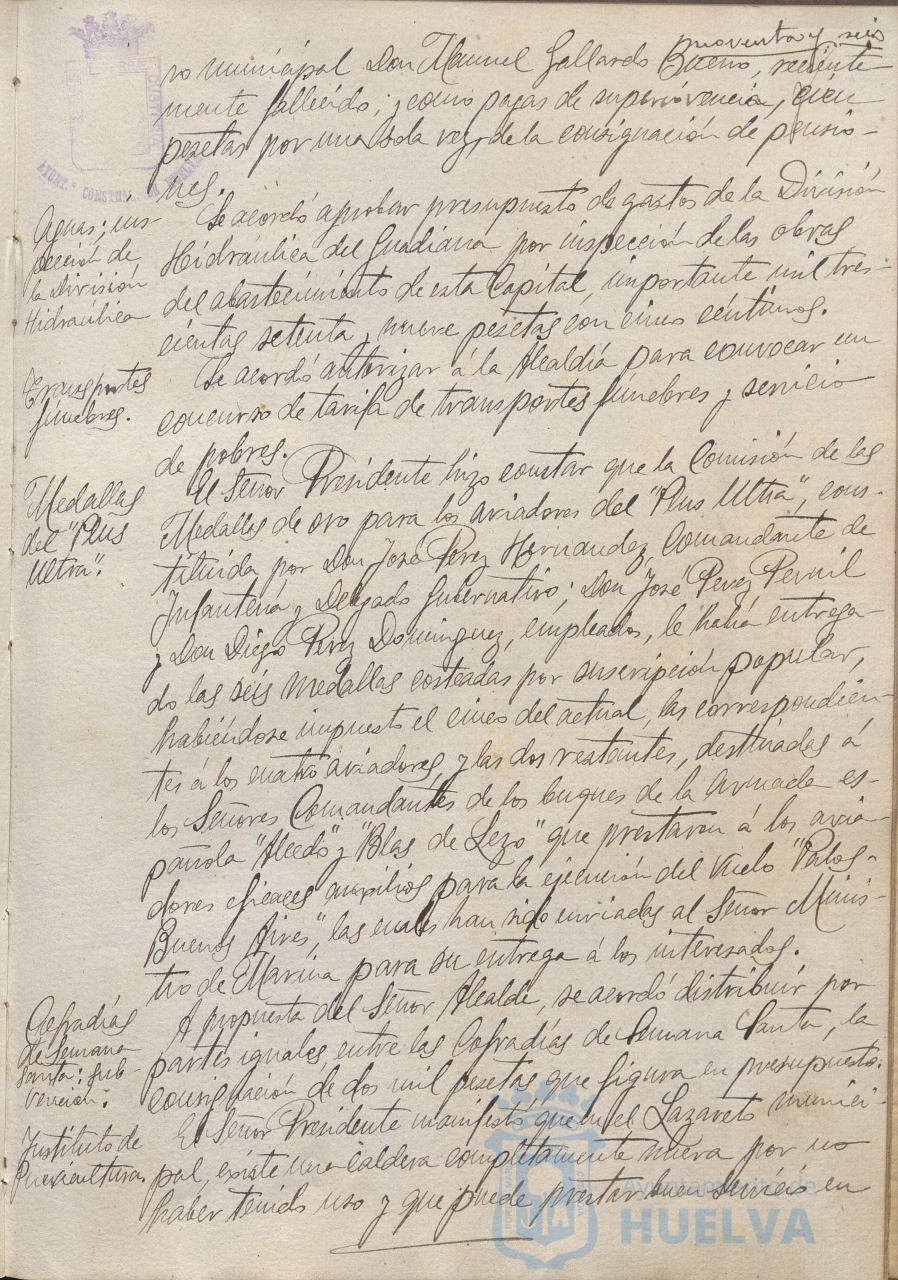 noventa y seis
ro municipal Don Manuel Gallardo Bueno, reciente
mente fallecido; y como pagas de supervivencia, cien
pesetas por una sola vez, de la consignación de pensio-
nes.
AYUNT.º CONSTNAL.
Aguas; ins-
pección de
la División
Hidráulica
Se acordó aprobar presupuesto de gastos de la División
Hidráulica del Guadiana por inspección de las obras
del abastecimiento de esta Capital, importante mil tres-
cientas setenta y nueve pesetas con cinco céntimos.
Transportes
fúnebres.
Se acordó autorizar á la Alcaldía para convocar un
concurso de tarifa de transportes fúnebres y servicio
de pobres.
Medallas
del "Plus
Ultra".
El Señor Presidente hizo constar que la Comisión de las
Medallas de oro para los aviadores del "Plus Ultra", cons-
tituida por Don José Perez Hernandez, Comandante de
Infantería y Delegado Gubernativo; Don José Perez Pernil
y Don Diego Perez Dominguez, empleados, le había entrega-
do las seis medallas costeadas por suscripción popular,
habiéndose impuesto el cinco del actual, las correspondien-
tes á los cuatro aviadores, y las dos restantes, destinadas á
los Señores Comandantes de los buques de la Armada es-
pañola "Alcedo" y "Blas de Lezo" que prestaron á los avia-
dores eficaces auxilios para la ejecución del vuelo "Palos-
Buenos Aires", las cuales han sido enviadas al Señor Minis-
tro de Marina para su entrega á los interesados.
Cofradías
de Semana
Santa: sub-
vención.
A propuesta del Señor Alcalde, se acordó distribuir por
partes iguales entre las Cofradías de Semana Santa, la
consignación de dos mil pesetas que figura en presupuesto.
Instituto de
Puericultura
El Señor Presidente manifestó que en el Lazareto munici-
pal, existe una caldera completamente nueva por no
haber tenido uso y que puede prestar buen servicio en
Ayuntamiento de
HUELVA